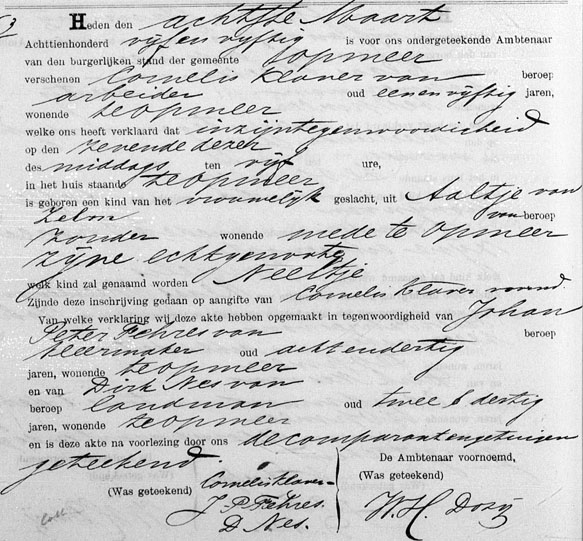 Heden den achtste Maart
Achttienhonderd vijfenvijftig is voor ons ondergeteekende Ambtenaar
van den burgerlijken stand der gemeente Opmeer
verschenen Cornelis Klaver van beroep
arbeider oud eenenvijftig jaren,
wonende te Opmeer
welke ons heeft verklaard dat in zijn tegenwoordigheid
op den zevende dezer
des middags ten vijf ure,
in het huis staande te Opmeer
is geboren een kind van het vrouwelijk geslacht, uit Aaltje van
Zelm van beroep
zonder wonende mede te Opmeer
zijne echtgenoote
welk kind zal genaamd worden Neeltje
Zijnde deze inschrijving gedaan op aangifte van Cornelis Klaver voornd
Van welke verklaring wij deze akte hebben opgemaakt in tegenwoordigheid van Johan
Peter Fehres van beroep
kleermaker oud achtendertig
jaren, wonende te Opmeer
en van Dirk Nes van
beroep landman oud twee & dertig
jaren, wonende te Opmeer
en is deze akte na voorlezing door ons de comparant en getuigen
geteekend
(Was geteekend) Cornelis Klaver
J P Fehres.
D Nes.
De Ambtenaar voornoemd,
(Was geteekend)
W. H. Dozij